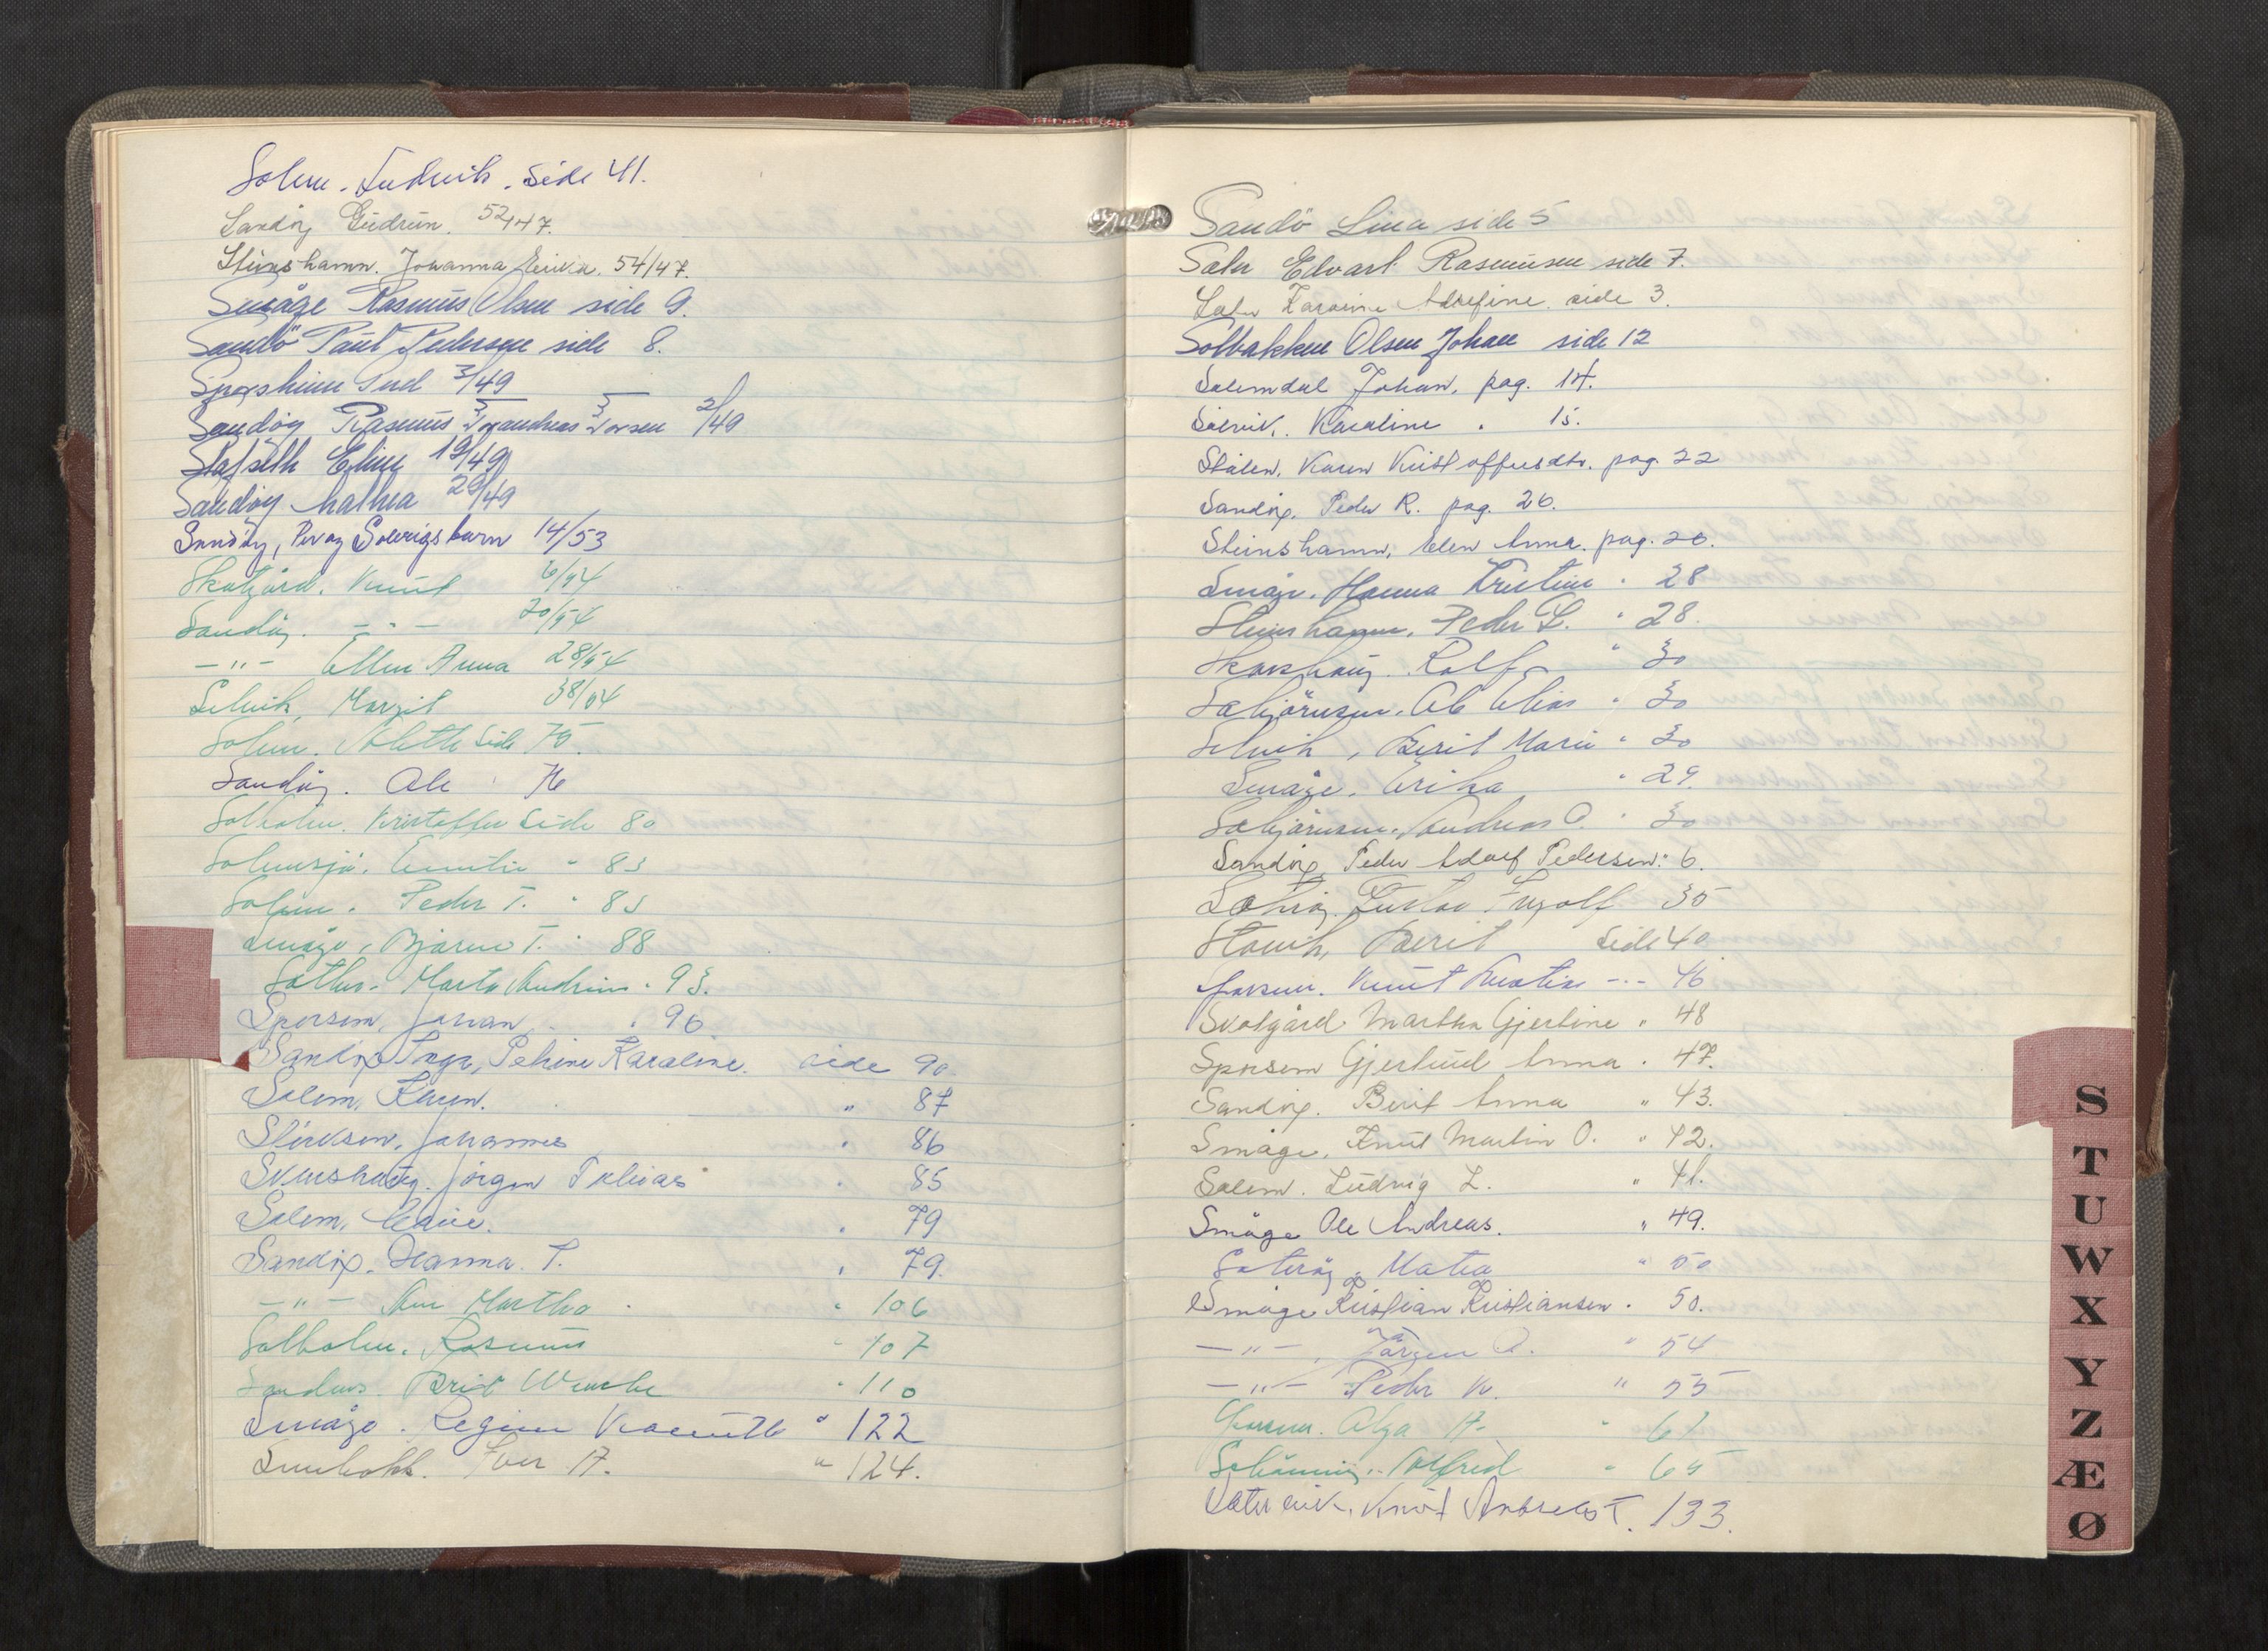 Solem. Ludvik. side 41.
Sandøy Gudrun. 52/47.
Steinshamn. Johanna Erika. 54/47.
Småge Rasmus Olsen side 9.
Sandö Paul Pedersen side 8.
Sporsheim Paul 3/49
Sandøy Rasmus Iversen 2/49
Stafseth Eline 19/49
Sandøy Mathea 29/49
Sandøy, Per og Solveigs barn 14/53
Skotgård. Knut 6/54
Sandöy. - " - 20/54
- " - Ellen Anna 28/54
Selvik, Margit 38/54
Solem. Alette side 75.
Sandöy. Ole 76
Solholm. Kristoffer side 80
Solemsjö. Emilie " 83
Solem. Peder T. " 85
Småge, Bjarne T. " 88
Sæther. Marta Andrine " 93.
Sporsem, Johan " 96
Sandøy Inga, Petrine Karoline. side 90.
Solem, Karen. " 87
Slirksen, Johannes " 86
Jørgen Tobias " 85
Solem, " 79
Sandøy. Hanna. P. " 79.
- " - Ane Martha " 106
Solholm. Rasmus " 107
Sanden Brit Wenche " 110
Småge. Regine " 122
Iver A. " 124.
Sandö Lina side 5
Edvart Rasmusen side 7.
side 3.
Solbakken Olsen Johan side 12
Solemdal Johan, pag. 14.
Solvik. Karoline " 15.
Stålen, Karen Kristoffersdtr. pag. 22
Sandøy, Peder R. pag. 26.
Steinshamn, Elen Anna. pag. 26.
Småge. Hanna Kristine " 28
Steinshamn, Peder L. " 28.
Skarshaug. Rolf " 30
Ole Elias " 30
Selvik, Berit Marie " 30
Småge. Erika " 29.
Andreas O. " 30
Sandøy, Peder Adolf Pedersen: 6.
Gustav Ingolf 35
Stavik, Berit side 40.
Knut Kristian - " - 46
Skotgård Martha Gjertine " 48
Sporsem Gjertrud Anna " 47.
Sandøy. Berit Anna " 43.
Småge, Knut Martin O. " 42.
Solem. Ludvig L. " 41.
Småge Ole Andreas. " 49.
Sæterøy, Matea " 50
Småge Kristian Kristiansen " 50.
- " -, Jörgen O. " 54
- " - Peder K. " 55
Olga A. " 61
Alfred " 65
Knut Andreas T. 133.
S
T
U
W
X
Y
Z
Æ
Ø